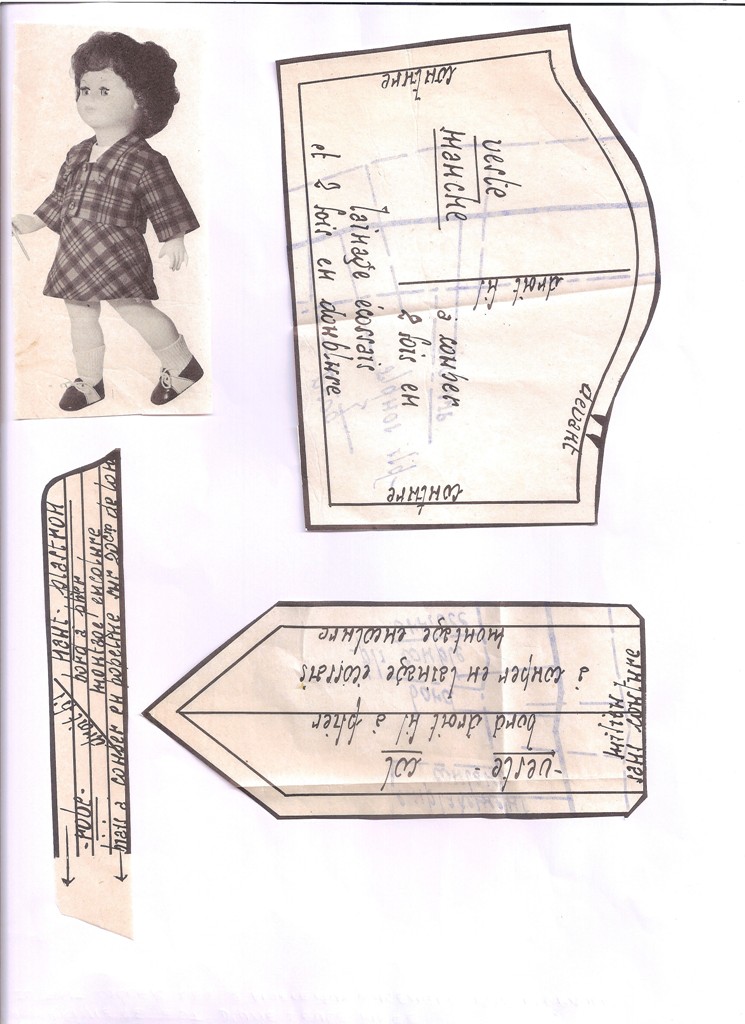 couture
veste
manche
droit fil
à couper
2 fois en
lainage écossais
et 2 fois en doublure
devant
couture
haut - plastron
bord à plier
montage encolure
mais à couper en popeline sur
de
veste
col
bord droit fil à plier
à couper en lainage écossais
montage encolure
milieu
sans couture